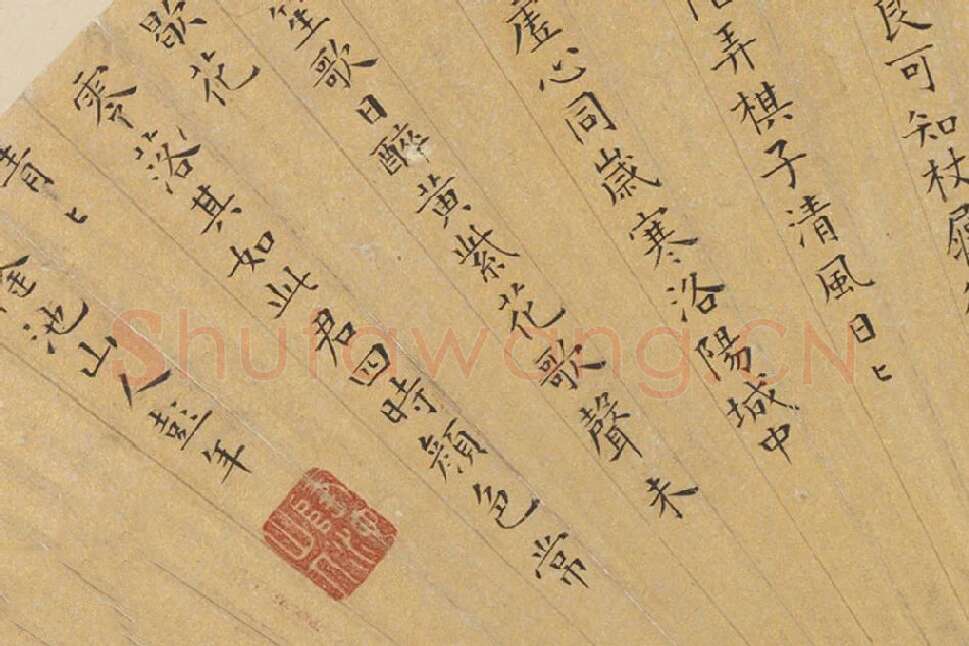 良可知杖屨
弄棋子清風日〻
虛心同歲寒洛陽城中
笙歌日醉黃紫花歌聲未
歇花
零落其如此君四時顏色常
青〻
隆池山人彭年
Shufawang.CN